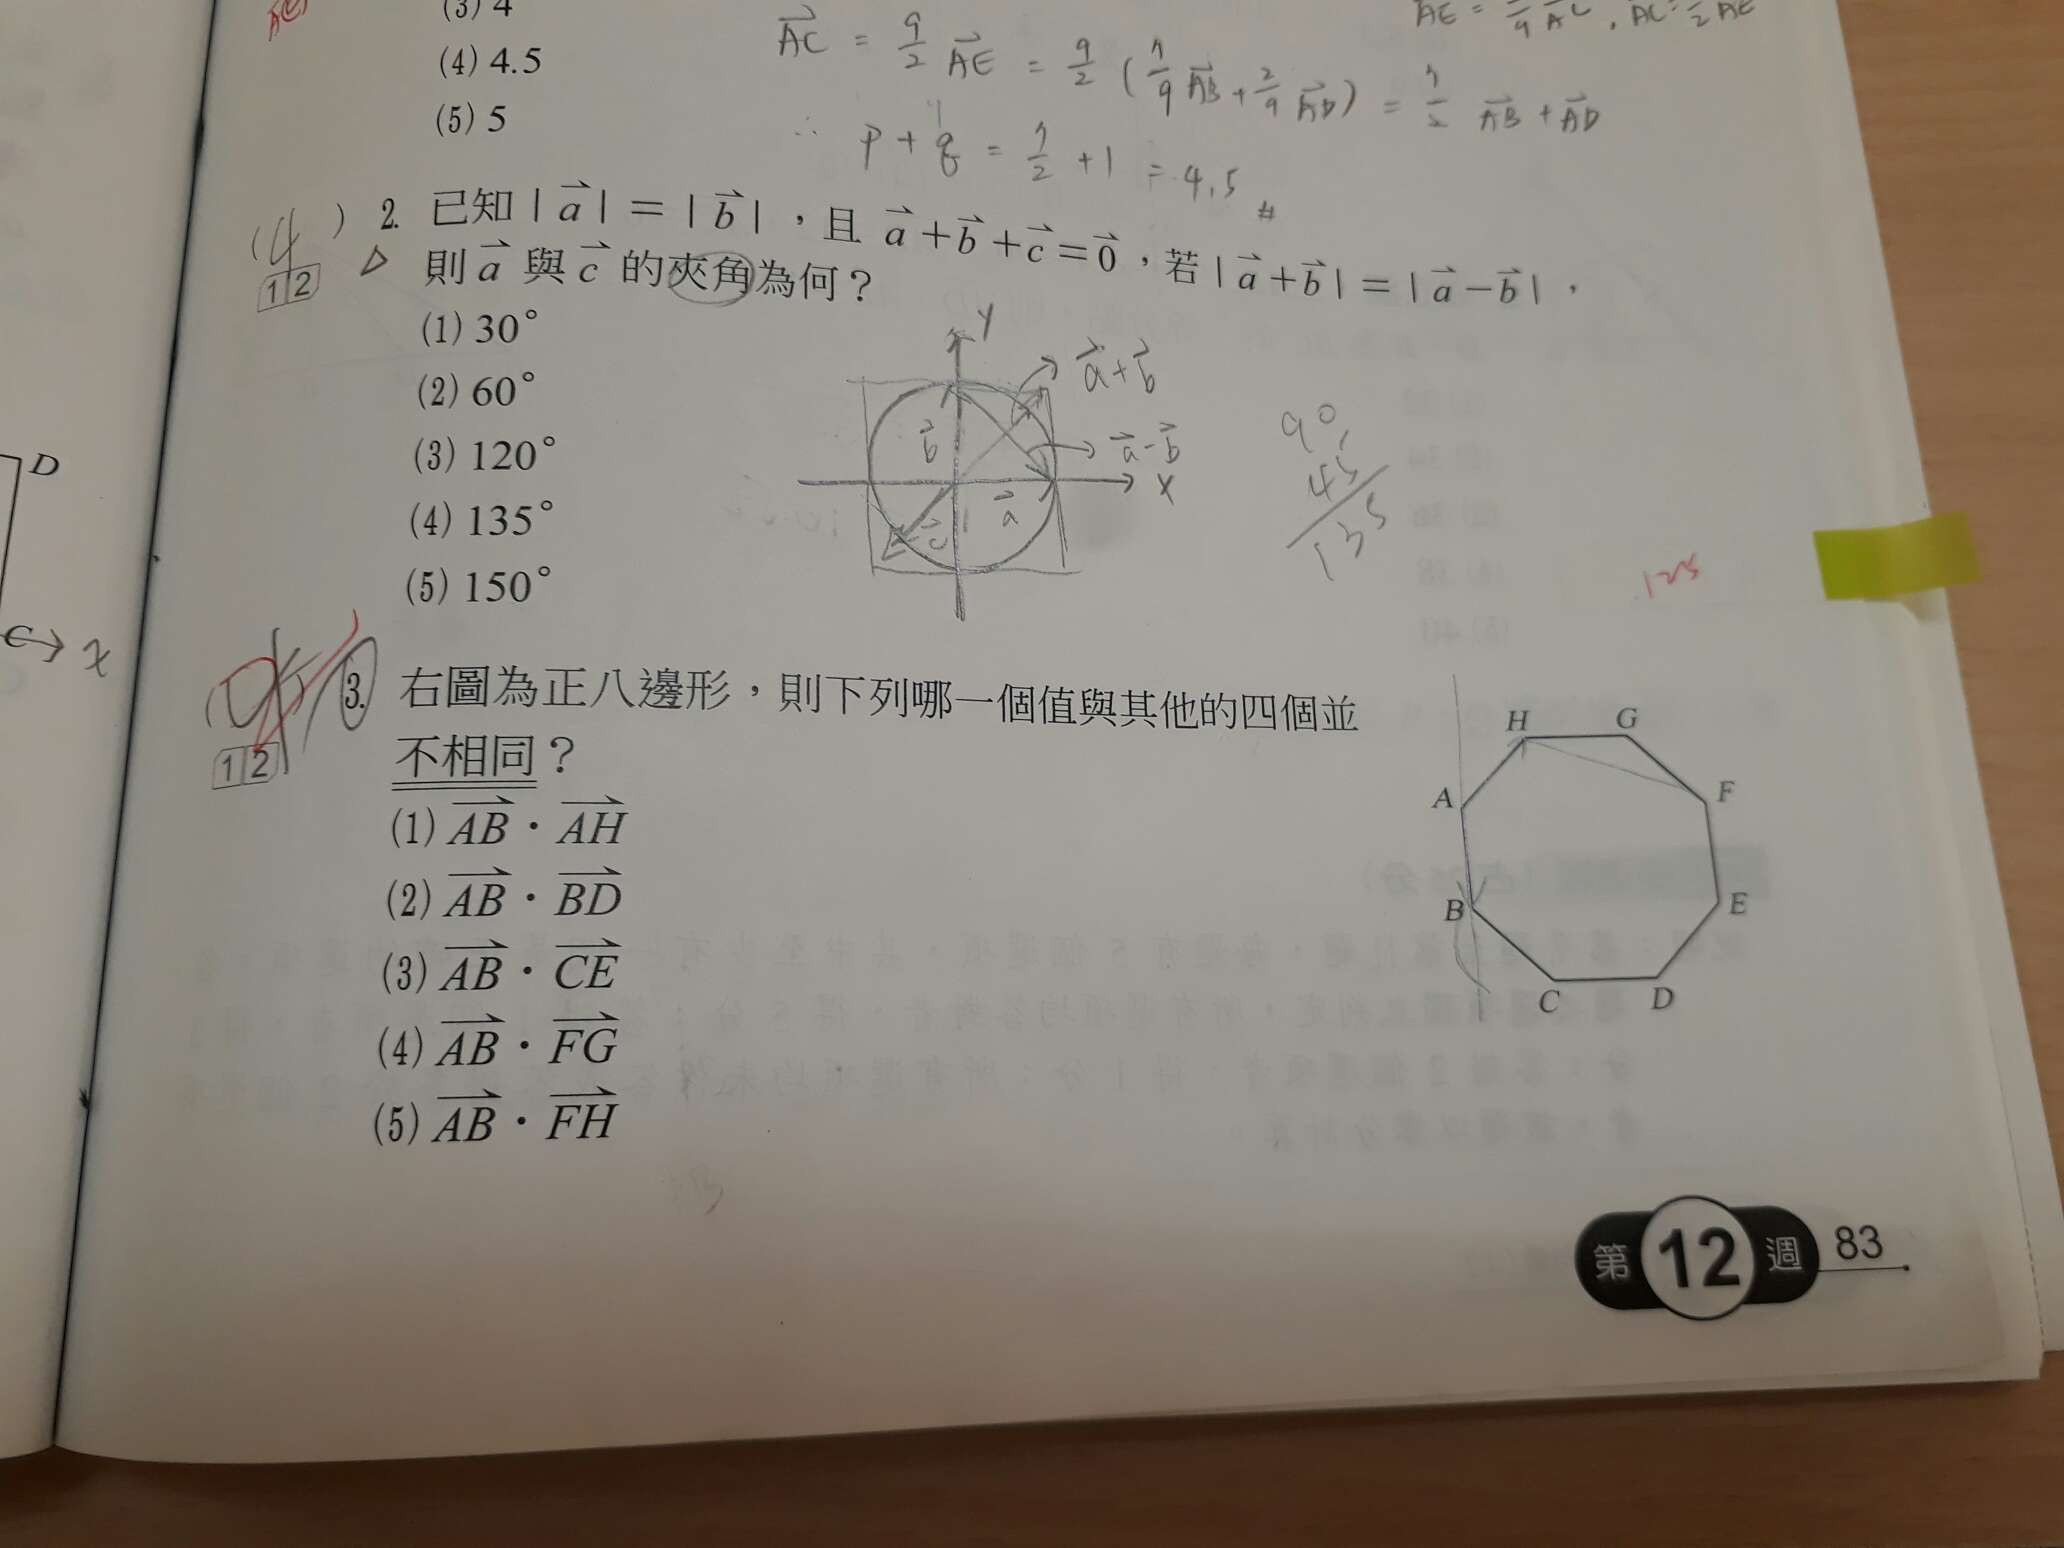 (3) 4
(4) 4.5
(5) 5
AC = 9/2 AE = 9/2 (7/9 AB + 2/9 AD) = 7/2 AB + AD
∴ p + q = 7/2 + 1 = 4.5 #
(4) 2. 已知 | a | = | b | ，且 a + b + c = 0 ，若 | a + b | = | a − b | ，
12 △ 則 a 與 c 的夾角為何？
(1) 30°
(2) 60°
(3) 120°
(4) 135°
(5) 150°
y
a+b
b
a-b
x
a
c
90
45
135
D
C
x
3. 右圖為正八邊形，則下列哪一個值與其他的四個並
12 不相同？
(1) AB · AH
(2) AB · BD
(3) AB · CE
(4) AB · FG
(5) AB · FH
H G
A F
B E
C D
第 12 週 83